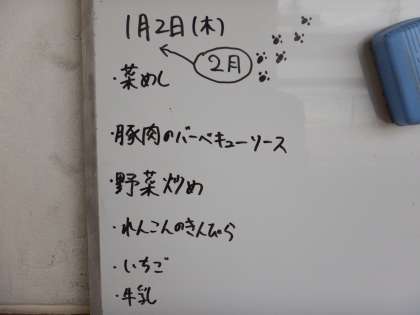 1月2日(木)
2月
・菜めし
・豚肉のバーベキューソース
・野菜炒め
・れんこんのきんぴら
・いちご
・牛乳